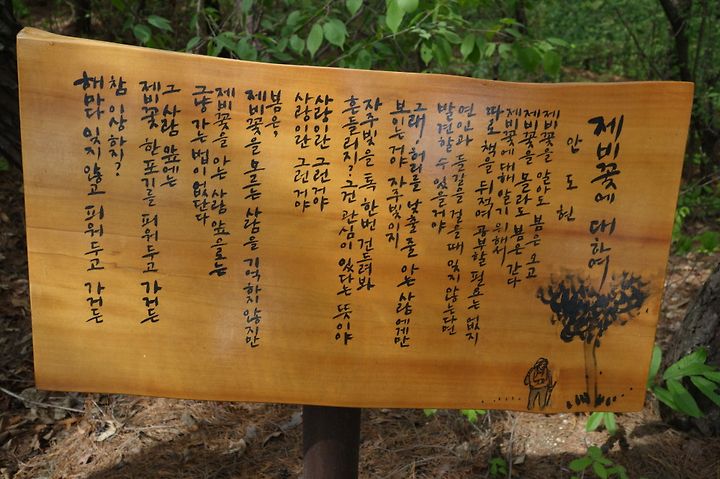 제비꽃에 대하여
안도현
제비꽃을 알아도 봄은 오고
제비꽃을 몰라도 봄은 간다
제비꽃에 대해 알기 위해서
따로 책을 뒤적여 공부할 필요는 없지
연인과 들길을 걸을 때 잊지 않는다면
발견할 수 있을거야
그래, 허리를 낮출 줄 아는 사람에게만
보이는거야 자주빛이지
자주빛을 톡 한번 건드려봐
흔들리지? 그건 관심이 있다는 뜻이야
사랑이란 그런거야
사랑이란 그런거야
봄은,
제비꽃을 모르는 사람을 기억하지 않지만
제비꽃을 아는 사람 앞으로는
그냥 가는 법이 없단다
그 사람 앞에는
제비꽃 한포기를 피워두고 가거든
참 이상하지?
해마다 잊지 않고 피워두고 가거든